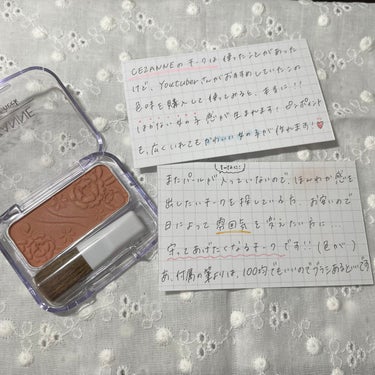 CEZANNEのチークは 使ったことがあった
けど、Youtuberさんがおすすめしていたこの
8味を購入して使ってみると、本当に!!
はかない女の子感が生まれます! ポイント
も、広くいれてもかわいい女の子が作れます!
ちなみに!
またパールが入っていないので、ほんわか感を
出したいチークを探している方、お安いので
日によって雰囲気を変えたい方に...
守ってあげたくなるチークです!! (色が)
あ、付属の筆よりは、100均でもいいのでブラシあるといいです
ANNE